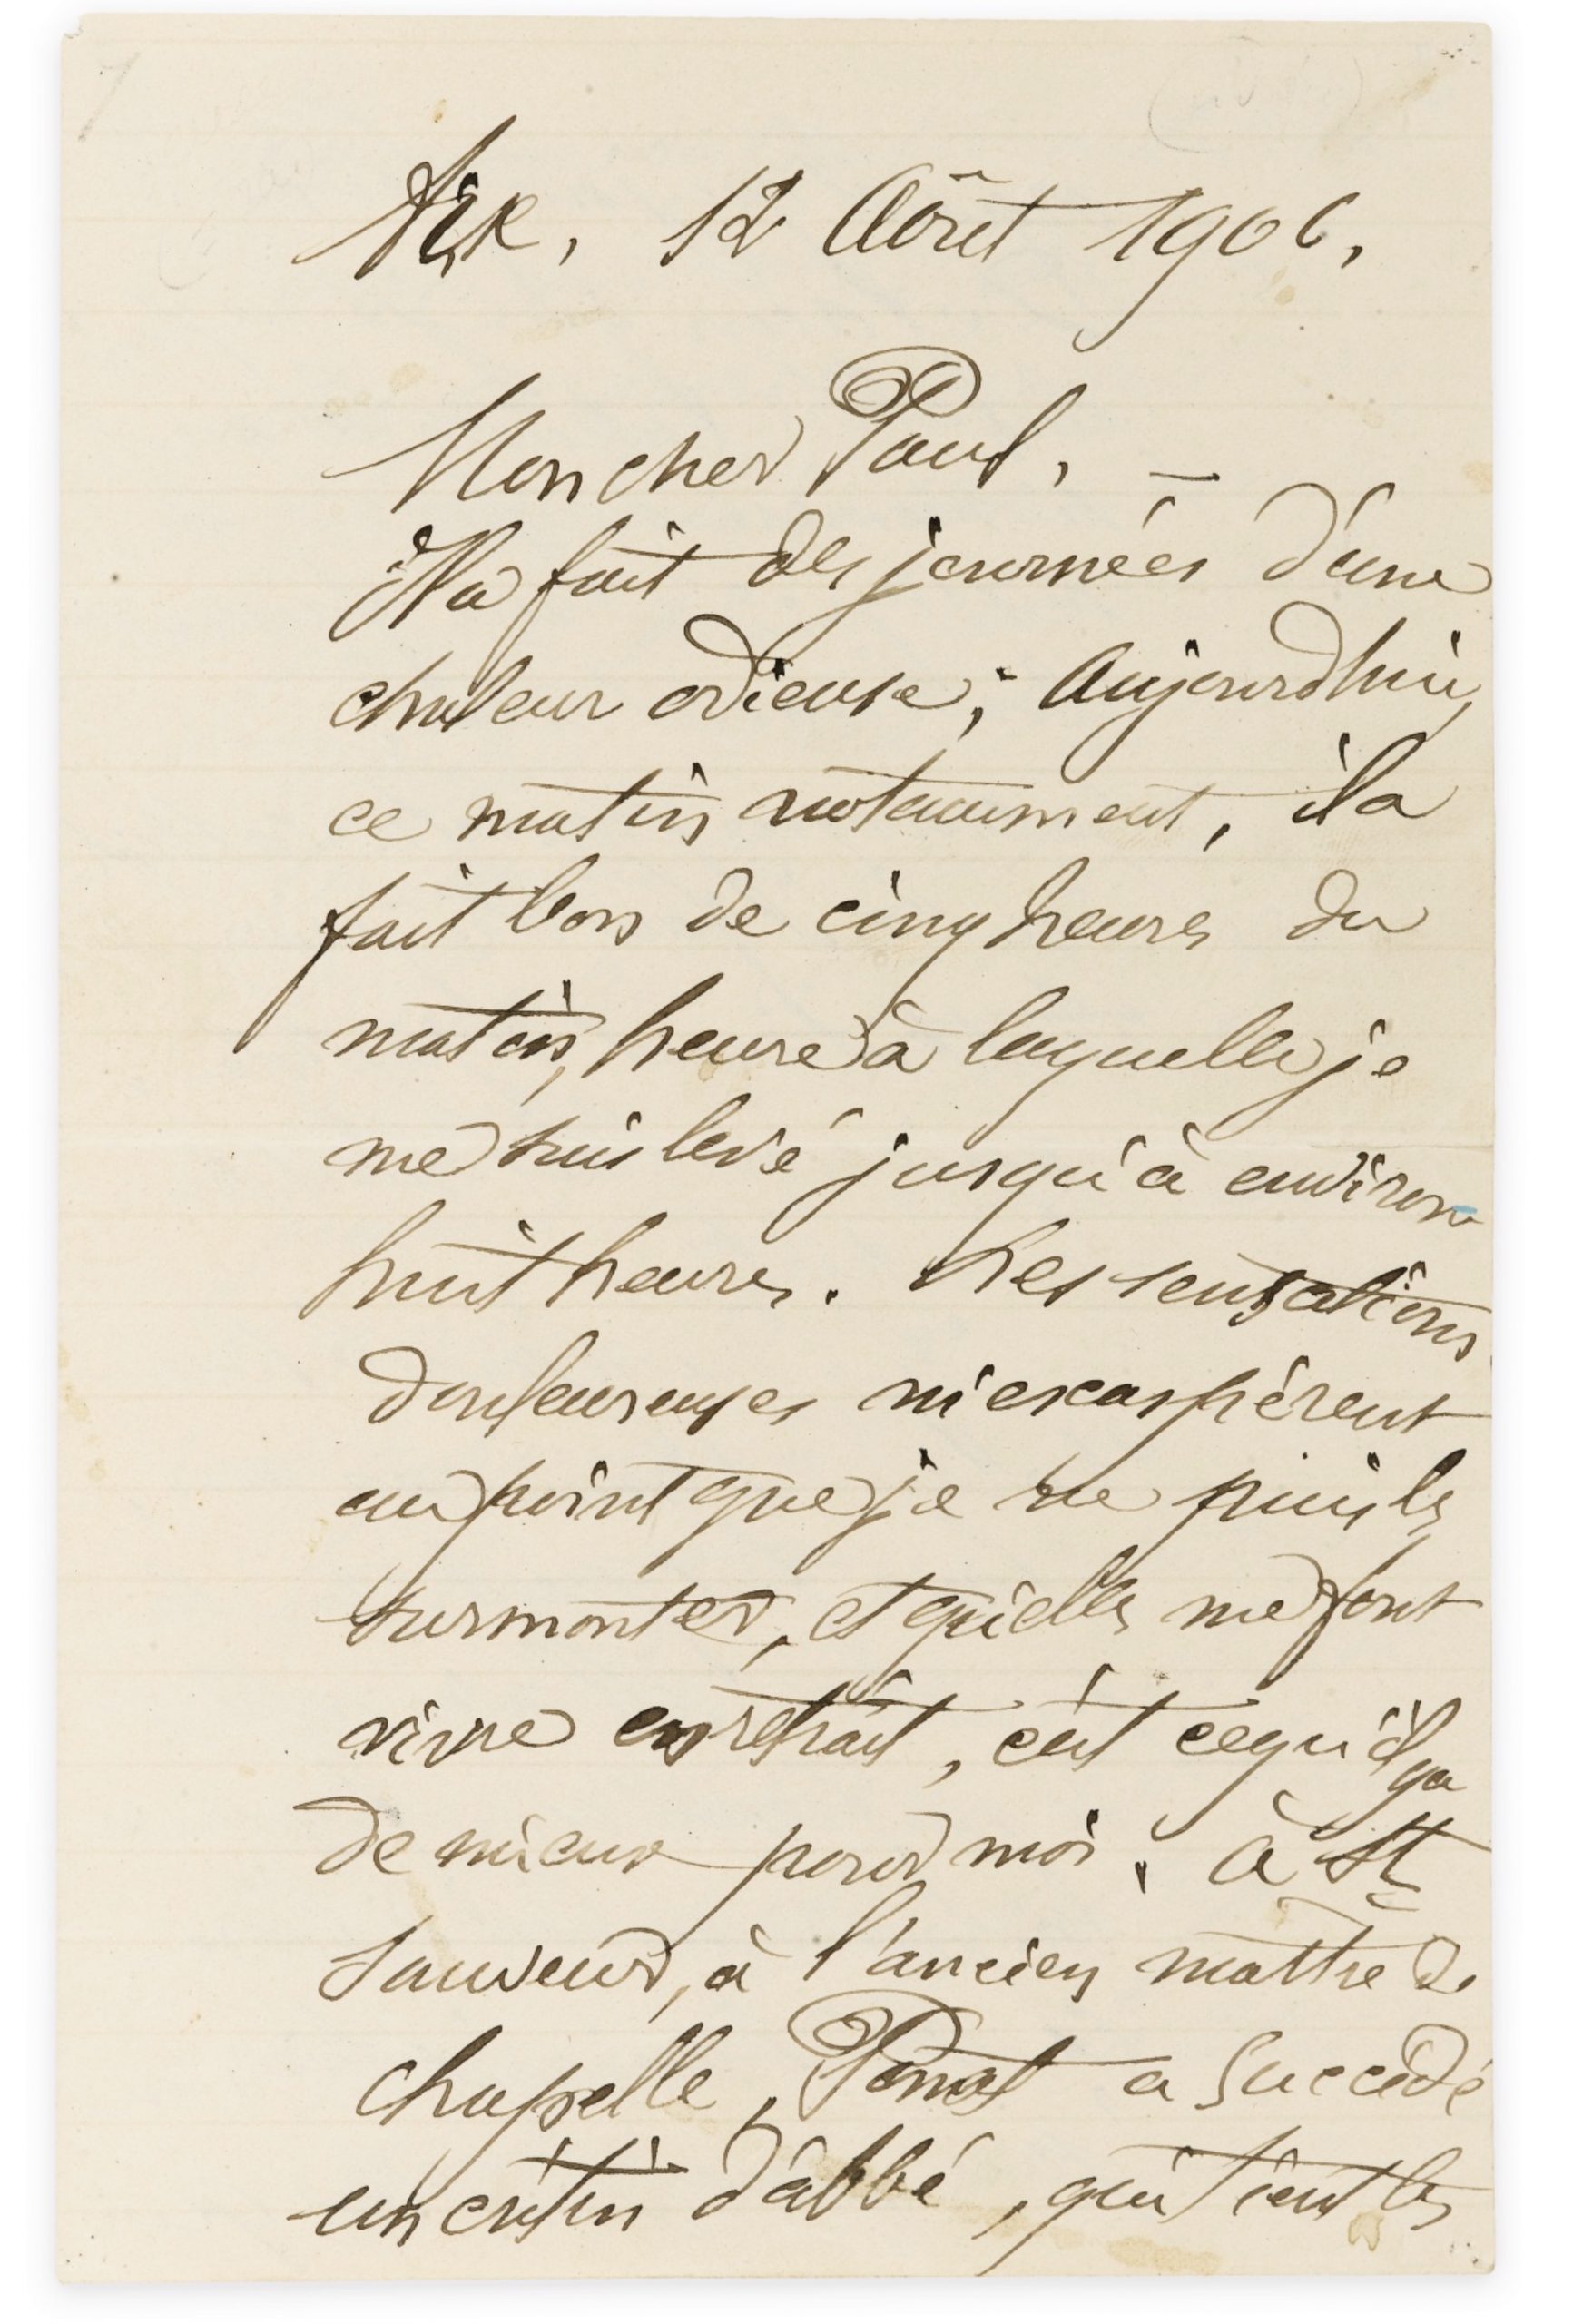 Aix, 12 Août 1906,
Mon cher Paul, —
Il a fait des journées d'une
chaleur odieuse; Aujourd'hui,
ce matin notamment, il a
fait bon de cinq heures du
matin, heure à laquelle je
me suis levé jusqu'à environ
huit heures. Les sensations
douloureuses m'exaspèrent
au point que je ne puis les
surmonter, et qu'elles me font
vivre en retrait, c'est ce qu'il y a
de mieux pour moi. à St
Sauveur, à l'ancien maître de
chapelle, Poncet a succédé
un crétin d'abbé, qui tient les